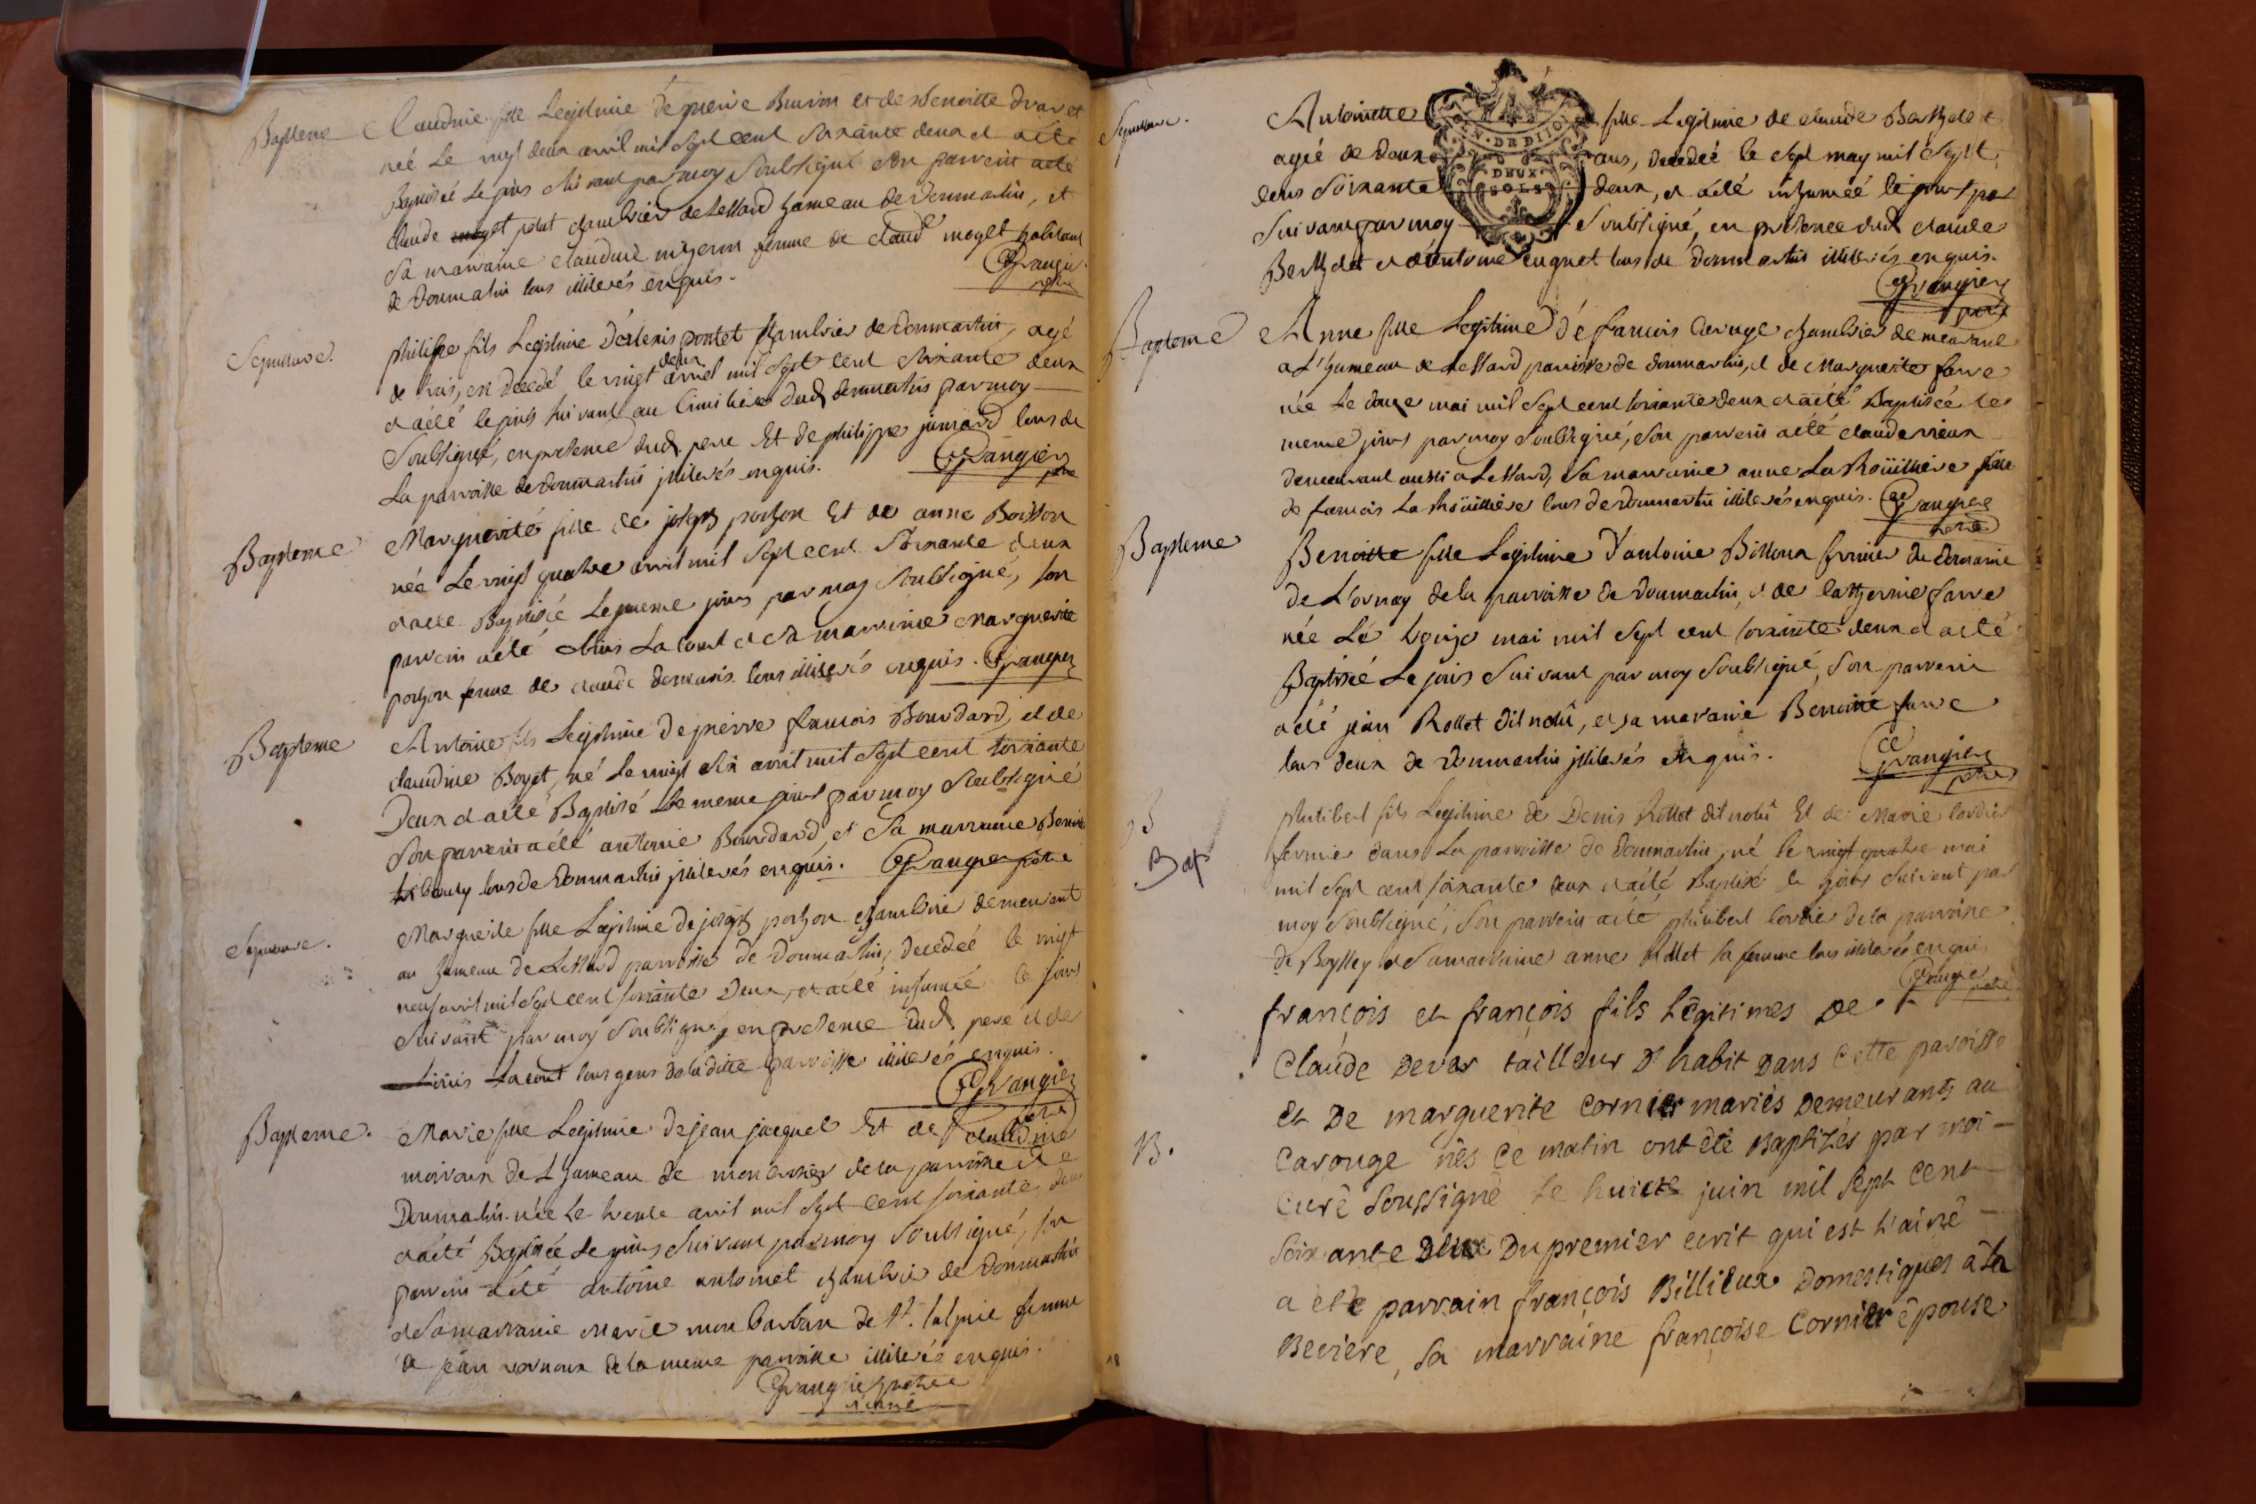 Bapteme Claudine fille Legitime de pierre Buiron et de Benoitte
née le vingt deux avril mil sept cent soixante deux et a été
Baptisée le jour suivant par moy soubsigné son parrein a été
claude moget chambrier de Lessard hameau de Dommartin, et
sa marraine claudine femme de claude moget habitant
de Dommartin tous illiterés enquis.
Sepulture. philippe fils Legitime d'alexis pontet chambrier de dommartin, agé
de trois, en decedé le vingt deux avril mil sept cent soixante deux
et a été le jour suivant au cimitiere dud dommartin par moy
Soubsigné, en presence dud pere Et de philippe tous de
La parroisse de dommartin illiterés enquis.
Bapteme Marguerite fille de joseph pochon Et de anne Boisson
née Le vingt quatre avril mil sept cent soixante deux
et a été Baptisée Le meme jour par moy soubsigné, son
parrein a été Lacout et sa marraine Marguerite
pochon femme de claude tous illiterés enquis. Grangier
Bapteme Antoine fils Legitime de pierre francois Bourdard, et de
claudine Boyet, né Le vingt six avril mil sept cent soixante
Deux et a été Baptisé Le meme jour par moy soubsigné
Son parrein a été antoine Bourdard et Sa marraine
tous de Dommartin illiterés enquis. Grangier pretre
Sepulture. Marguerite fille Legitime de joseph pochon chambrier demeurant
au hameau de Lessard parroisse de Dommartin, decedée le vingt
neuf avril mil sept cent soixante Deux, et a été inhumée le jour
suivant par moy soubsigné, en presence dud pere et de
Lacout tous gens de la ditte parroisse illiterés enquis.
Grangier
Bapteme. Marie fille Legitime de jean jacquet Et de claudine
moiroux de L'hameau de de la parroisse de
Dommartin née Le trente avril mil sept cent soixante deux
et a été Baptisée Le jour suivant par moy soubsigné, son
parrein a été antoine antoinet chambrier de Dommartin
et Sa marraine Marie de St. femme
de jean de la meme parroisse illiterés enquis.
Grangier pretre
Sepulture. Antoinette fille Legitime de claude Berthelet
agée de deux ans, decedée le sept may mil sept
cens soixante deux, et a été inhumée le jour
suivant par moy soubsigné, en presence dud claude
DEUX
SOLS
Berthelet et d'antoine cuguet tous de Dommartin illiterés enquis.
Grangier
Bapteme Anne fille Legitime de francois Carruge chambrier demeurant
a L'hameau de Lessard parroisse de dommartin, et de Marguerite farre
née le douze mai mil sept cent soixante deux et a été Baptisée le
meme jour par moy soubsigné, son parrein a été claude vieux
demeurant aussi a Lessard, sa marraine anne La Roüilliere fille
de francois La Roüilliere tous de Dommartin illiterés enquis. Grangier
Bapteme Benoitte fille Legitime d'antoine Billoux fermier du domaine
de L'ornay de la parroisse de Dommartin, et de Catherine farre
née Le treize mai mil sept cent soixante deux et a été
Baptisée Le jour suivant par moy soubsigné, son parrein
a été jean Rollet dit , et sa maraine Benoitte farre
tous deux de Dommartin illiterés enquis. Grangier
Bap philibert fils Legitime de Denis Rollet dit Et de Marie
fermier dans La parroisse de Dommartin, né le vingt quatre mai
mil sept cent soixante deux et a été Baptisé le jour suivant par
moy soubsigné, son parrein a été philibert de la parroisse
de et Sa marraine anne Rollet sa femme tous illiterés enquis
françois et françois fils Légitimes De
Claude Dever tailleur D'habit Dans Cette paroisse
Et De marguerite Cornier mariés Demeurants au
B. Carouge nés Ce matin ont été Baptizés par moi
Curé Soussigné Le huict juin mil Sept Cent
Soixante Deux Du premier ecrit qui est L'ainé
a été parrain françois Billioux Domestique à la
Beciere, Sa marraine françoise Cornier épouse